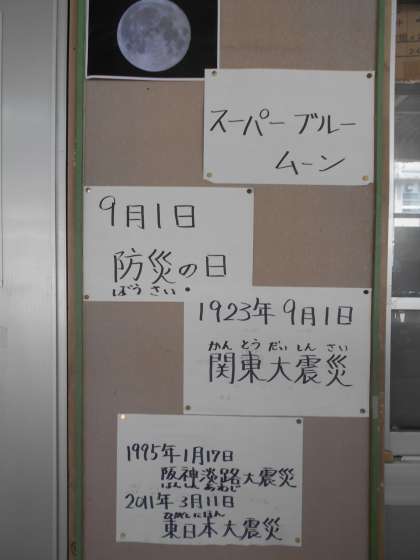 スーパーブルー
ムーン
9月1日
防災の日
ぼうさい
1923年9月1日
かんとうだいしんさい
関東大震災
1995年1月17日
阪神淡路大震災
はんしんあわじ
2011年3月11日
ひがしにほん
東日本大震災